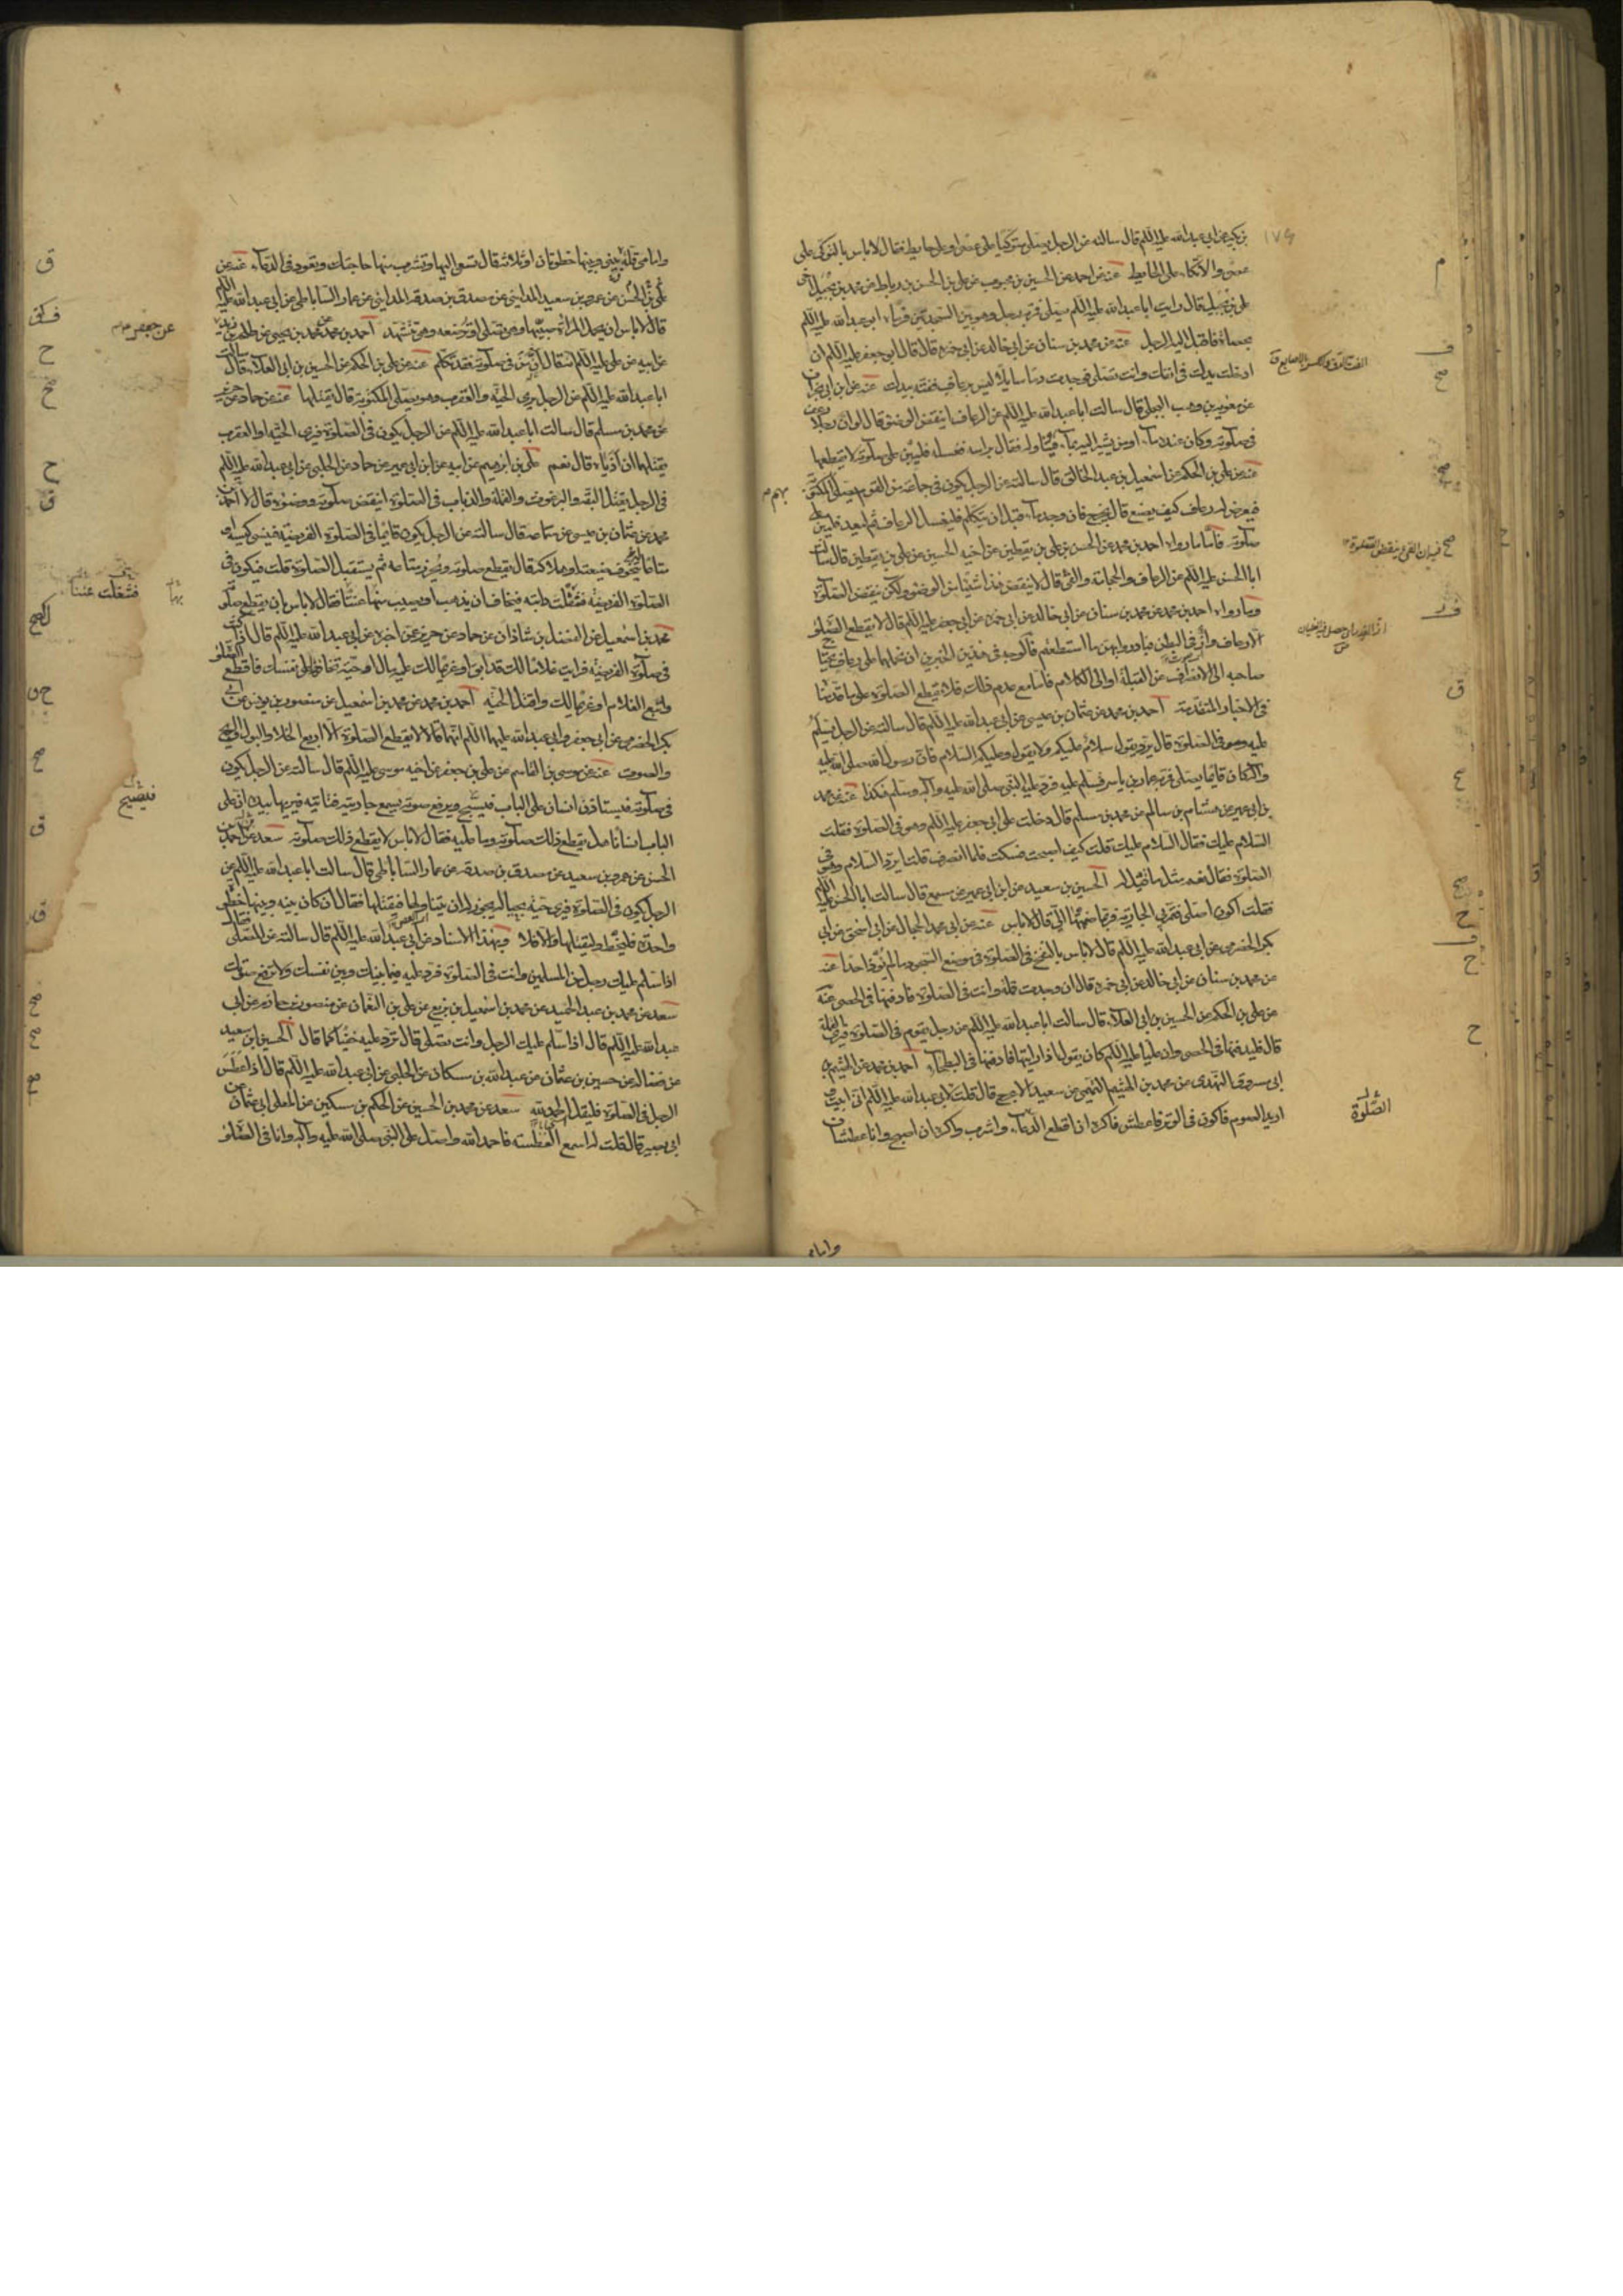 بن بكير عن ابي عبد الله عليه السلم قال سالته عن الرجل يصلي متوكيا على عصا او على حايط فقال لا باس بالتوكي على
عصى والاتكاء على الحايط عنه عن احمد عن الحسين بن محبوب عن علي بن الحسن بن رباط عن محمد بن بجيل اخي
علي بن بجيل قال رايت ابا عبد الله عليه السلم يصلي فمر به رجل وهو بين السجدتين فرماه ابو عبد الله عليه السلم
بحصاة فاقبل اليه الرجل عنه عن محمد بن سنان عن ابي خالد عن ابي حمزة قال قال ابو جعفر عليه السلم ان
ادخلت يدك في انفك وانت تصلي فوجدت دما سايلا ليس برعاف ففته بيدك عنه عن ابن ابي نجران
عن معوية بن وهب البجلي قال سالت ابا عبد الله عليه السلم عن الرعاف اينقض الوضوء قال لو ان رجلا رعف
في صلوته وكان عنده ماء او من يشير اليه بماء فيناوله فقال براسه فغسله فليبن على صلوته لا يقطعها
عنه عن علي بن الحكم عن اسمعيل بن عبد الخالق قال سالته عن الرجل يكون في جماعة من القوم يصلي المكتوبة
فيعرض له رعاف كيف يصنع قال يخرج فان وجد ماء قبل ان يتكلم فليغسل الرعاف ثم ليعد فليبن على
صلوته فاما ما رواه احمد بن محمد عن الحسن بن علي بن يقطين عن اخيه الحسين عن علي بن يقطين قال سالت
ابا الحسن عليه السلم عن الرعاف والحجامة والقئ قال لا ينقض هذا شيئا من الوضوء ولكن ينقض الصلوة
وما رواه احمد بن محمد عن محمد بن سنان عن ابي خالد عن ابي حمزة عن ابي جعفر عليه السلم قال لا يقطع الصلوة
الا رعاف وازّ في البطن فبادروا بهن ما استطعتم فالوجه في هذين الخبرين ان نحملهما على رعاف يحتاج
صاحبه الى الانصراف عن القبلة او الى الكلام فاما مع عدم ذلك فلا يقطع الصلوة على ما قدمنا
في الاخبار المتقدمة احمد بن محمد عن عثمان بن عيسى عن ابي عبد الله عليه السلم قال سالته عن الرجل يسلم
عليه وهو في الصلوة قال يرد يقول سلام عليكم ولا يقول وعليكم السلام فان رسول الله صلى الله عليه
وآله كان قائما يصلي فمر به عمار بن ياسر فسلم عليه فرد عليه النبي صلى الله عليه وآله وسلم هكذا عنه عن محمد
بن ابي عمير عن هشام بن سالم عن محمد بن مسلم قال دخلت على ابي جعفر عليه السلم وهو في الصلوة فقلت
السلام عليك فقال السلام عليك قلت كيف اصبحت فسكت فلما انصرف قلت ايرد السلام وهو في
الصلوة فقال نعم مثل ما قيل له الحسين بن سعيد عن ابن ابي عمير عن مسمع قال سالت ابا الحسن عليه السلم
فقلت اكون اصلي فتمر بي الجارية فربما ضممتها الي قال لا باس عنه عن ابي محمد الحجال عن ابي اسحق عن ابي
بكر الحضرمي عن ابي عبد الله عليه السلم قال لا باس بالنفخ في الصلوة في موضع السجود ما لم يؤذ احدا عنه
عن محمد بن سنان عن ابي خالد عن ابي حمزة قال ان وجدت قملة وانت في الصلوة فادفنها في الحصى عنه
عن علي بن الحكم عن الحسين بن ابي العلاء قال سالت ابا عبد الله عليه السلم عن رجل يقوم في الصلوة فيرى القملة
قال فليدفنها في الحصى فان عليا عليه السلم كان يقول اذا رايتها فادفنها في البطحاء احمد بن محمد عن الهيثم بن
ابي مسروق النهدي عن محمد بن الهيثم التميمي عن سعيد الاعرج قال قلت لابي عبد الله عليه السلم اني ابيت و
اريد الصوم فاكون في الوتر فاعطش فاكره ان اقطع الدعاء واشرب واكره ان اصبح وانا عطشان
وامامي
وامامي قلة بيني وبينها خطوتان او ثلاثة قال تسعى اليها وتشرب منها حاجتك وتعود في الدعاء عنه عن
علي بن الحسن عن عمرو بن سعيد المدايني عن مصدق بن صدقة المدايني عن عمار الساباطي عن ابي عبد الله عليه السلم
قال لا باس ان تحمل المراة صبيها وهي تصلي او ترضعه وهي تتشهد احمد بن محمد عن محمد بن يحيى عن طلحة بن زيد
عن ابيه عن علي عليه السلم انه قال من أنّ في صلوته فقد تكلم عنه عن علي بن الحكم عن الحسين بن ابي العلاء قال سالت
ابا عبد الله عليه السلم عن الرجل يرى الحية والعقرب وهو يصلي المكتوبة قال يقتلهما عنه عن حماد عن حريز
عن محمد بن مسلم قال سالت ابا عبد الله عليه السلم عن الرجل يكون في الصلوة فيرى الحية او العقرب
يقتلهما ان آذياه قال نعم علي بن ابرهيم عن ابيه عن ابن ابي عمير عن حماد عن الحلبي عن ابي عبد الله عليه السلم
في الرجل يقتل البقة والبرغوث والقملة والذباب في الصلوة اينقض صلوته ووضوءه قال لا احمد بن
محمد عن عثمان بن عيسى عن سماعة قال سالته عن الرجل يكون قائما في الصلوة الفريضة فينسى كيسه او
متاعا يتخوف ضيعته او هلاكه قال يقطع صلوته ويحرز متاعه ثم يستقبل الصلوة قلت فيكون في
الصلوة الفريضة فتفلت دابته فيخاف ان يذهب او يصيب منها عنتا فقال لا باس ان يقطع صلوته
محمد بن اسمعيل عن الفضل بن شاذان عن حماد عن حريز عن اخبره عن ابي عبد الله عليه السلم قال اذا كنت
في صلوة الفريضة فرايت غلاما لك قد ابق او غريما لك عليه مال او حية تخافها على نفسك فاقطع الصلوة
واتبع الغلام او غريما لك واقتل الحية احمد بن محمد عن محمد بن اسمعيل عن منصور بن يونس عن ابي
بكر الحضرمي عن ابي جعفر وابي عبد الله عليهما السلم انهما قالا لا يقطع الصلوة الا اربع الخلاء والبول والريح
والصوت عنه عن موسى بن القاسم عن علي بن جعفر عن اخيه موسى عليه السلم قال سالته عن الرجل يكون
في صلوته فيستاذن انسان على الباب فيسبح ويرفع صوته يسمع جاريته فتاتيه فيريها بيده ان على
الباب انسانا هل يقطع ذلك صلوته وما عليه فقال لا باس لا يقطع ذلك صلوته سعد عن احمد بن
الحسن عن عمرو بن سعيد عن مصدق بن صدقة عن عمار الساباطي قال سالت ابا عبد الله عليه السلم عن
الرجل يكون في الصلوة فيرى حية بحياله يجوز له ان يتناولها فيقتلها فقال ان كان بينه وبينها خطوة
واحدة فليخط وليقتلها والا فلا وبهذا الاسناد عن ابي عبد الله عليه السلم قال سالته عن المصلي فقال
اذا سلم عليك رجل من المسلمين وانت في الصلوة فرد عليه فيما بينك وبين نفسك ولا ترفع صوتك
سعد عن محمد بن عبد الحميد عن محمد بن اسمعيل بن بزيع عن علي بن النعمان عن منصور بن حازم عن ابي
عبد الله عليه السلم قال اذا سلم عليك الرجل وانت تصلي قال ترد عليه خفيا كما قال الحسين بن سعيد
عن فضالة عن حسين بن عثمان عن عبد الله بن مسكان عن الحلبي عن ابي عبد الله عليه السلم قال اذا عطس
الرجل في الصلوة فليقل الحمد لله سعد عن محمد بن الحسين عن الحكم بن مسكين عن المعلى ابي عثمان عن
ابي بصير قال قلت له اسمع العطسة فاحمد الله واصلي على النبي صلى الله عليه وآله وانا في الصلوة